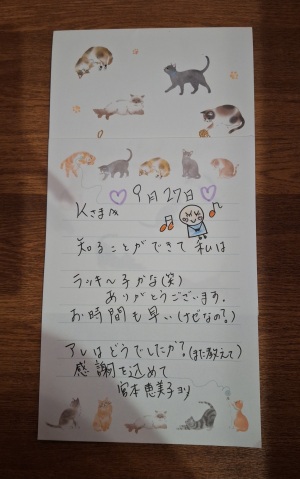 9月27日
Kさま
知ることができて私は
ラッキ〜子かな(笑)
ありがとうございます.
お時間も早い(なぜなの?)
アレはどうでしたか?(また教えて)
感謝を込めて
宮本恵美子より